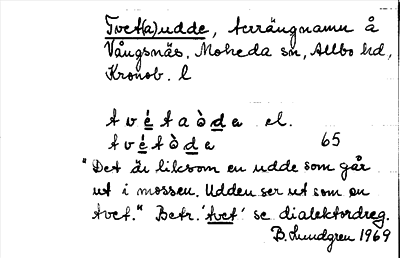 Tvet(a)udde, terrängnamn å
Vångsnäs, Moheda sn, Allbo hd,
Kronob. l
tvétaòde el.
tvétòde 65
"Det är liksom en udde som går
ut i mossen. Udden ser ut som en
tvet." Betr. 'tvet' se dialektordreg.
B. Lundgren 1969